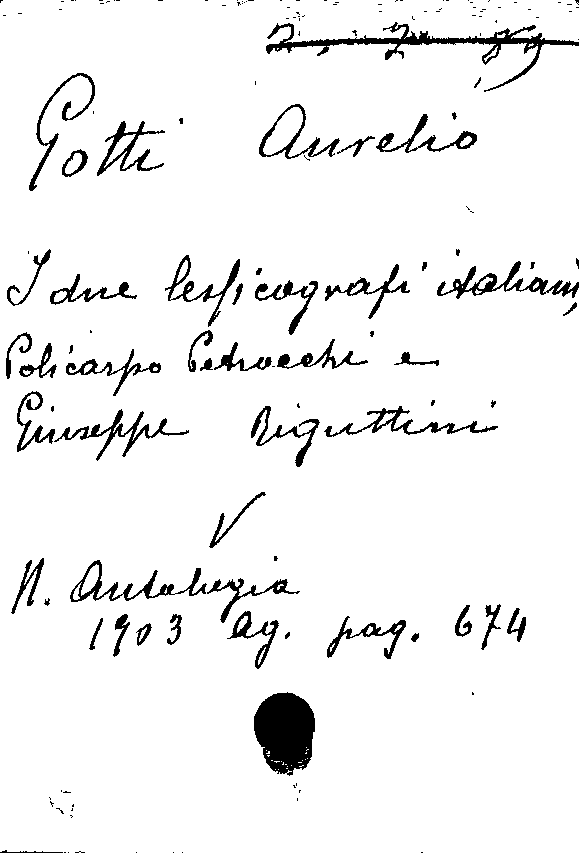 2. 7. 89
Gotti Aurelio
I due lessicografi italiani,
Policarpo Petrocchi e
Giuseppe Riguttini
N. Antologia
1903 Ag. pag. 674